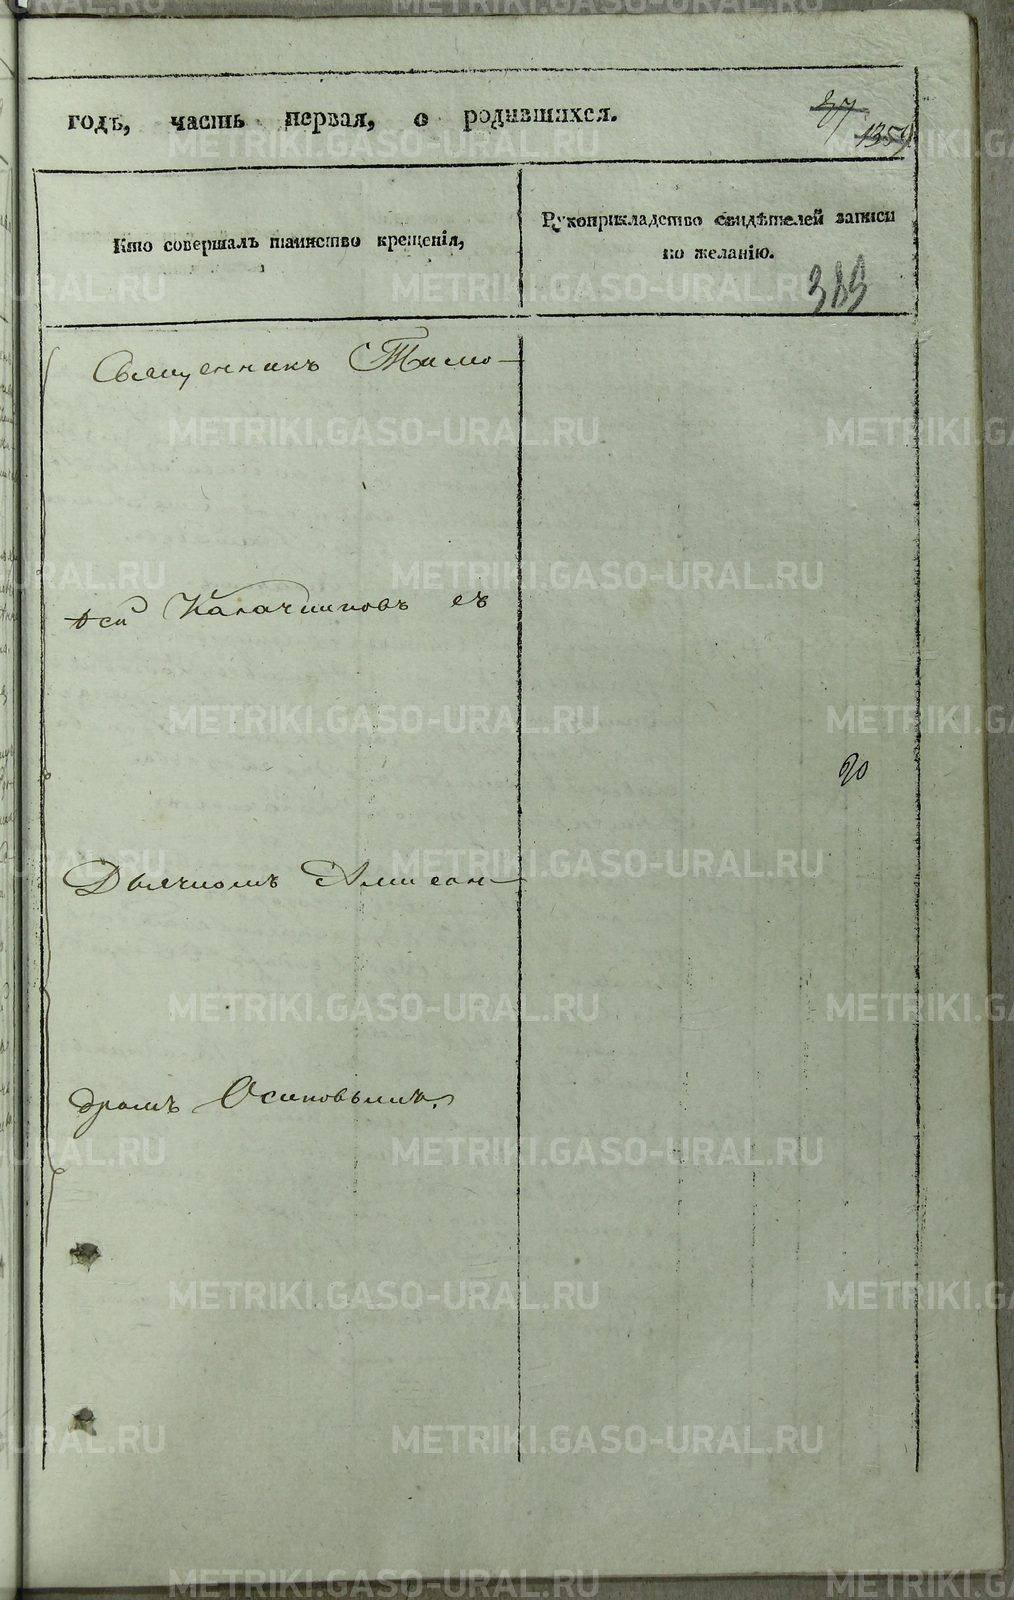 годъ, часть первая, о родившихся.
37
1359
Кто совершалъ таинство крещенія,
Рукоприкладство свидѣтелей записи
по желанію.
383
Священникъ Тимо-
ѳей Калачниковъ съ
Дьячкомъ Алексан-
дромъ Осиповымъ.
90
METRIKI.GASO-URAL.RU